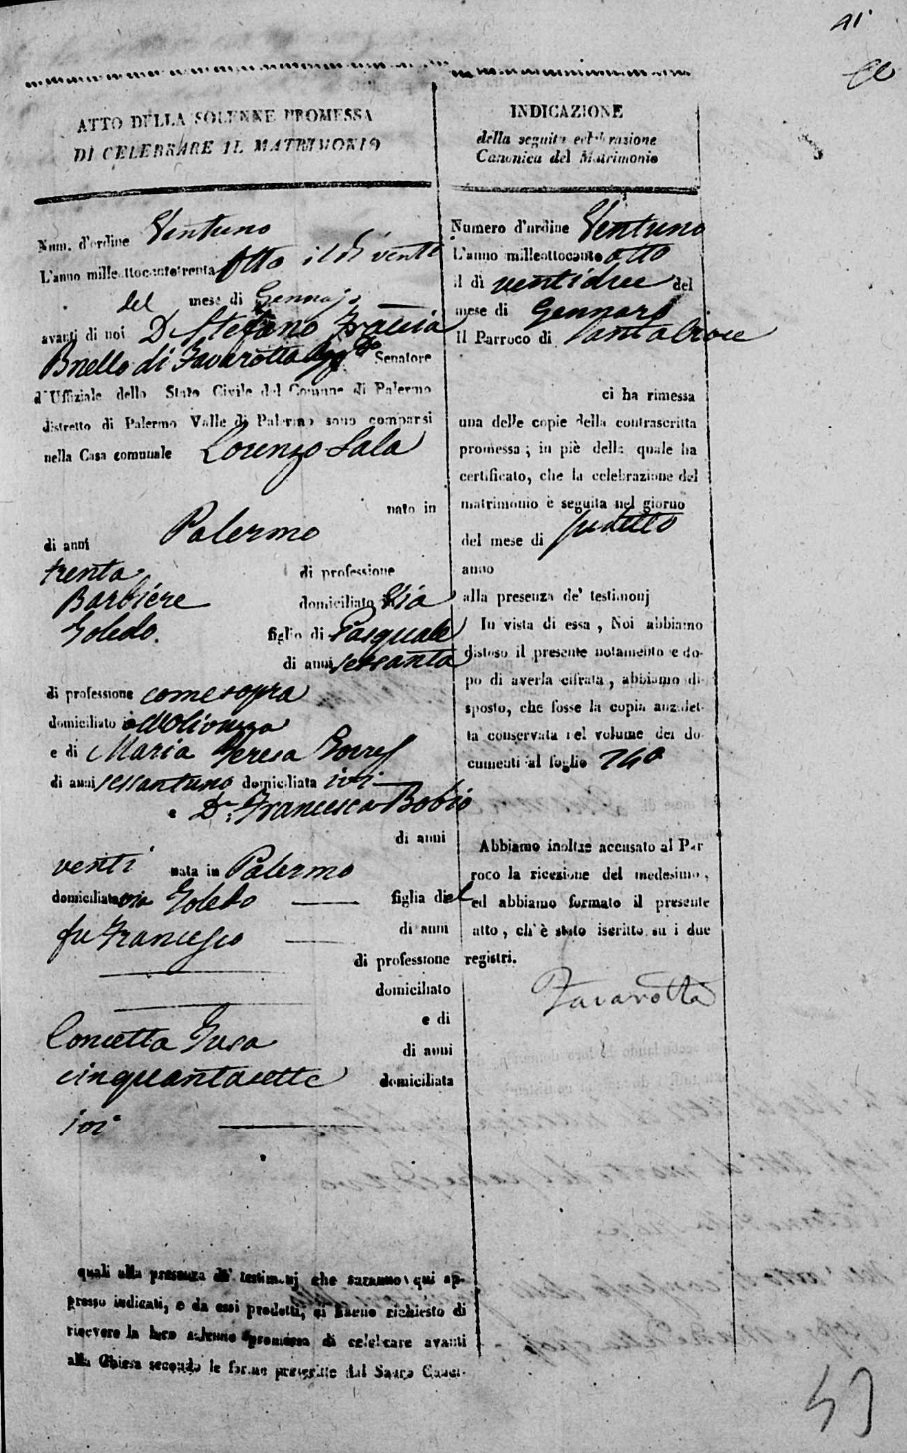 41
ATTO DELLA SOLENNE PROMESSA
DI CELEBRARE IL MATRIMONIO
Num. d'ordine Ventuno
L'anno milleottocentotrenta Otto il dì venti
del mese di Gennajo
avanti di noi D. Stefano
di Favarotta Senatore
d'Uffiziale dello Stato Civile del Comune di Palermo
distretto di Palermo Valle di Palermo sono comparsi
nella Casa comunale Lorenzo Sala
nato in
di anni Palermo
trenta di professione
Barbiere domiciliato Via
Toledo. figlio di Pasquale
di anni sessanta
di professione come sopra
domiciliato
e di Maria Teresa
di anni sessantuno domiciliata ivi
e Da. Francesca Bobio
di anni
venti nata in Palermo
domiciliata Toledo figlia di
fu Francesco di anni
di professione
domiciliato
e di
Concetta Fusa
di anni
cinquantasette domiciliata
ivi
quali alla presenza de' testimonj che saranno qui ap-
presso indicati, e da essi prodotti, ci hanno richiesto di
ricevere la loro solenne promessa di celebrare avanti
alla Chiesa secondo le forme prescritte dal Sacro Conci-
INDICAZIONE
della seguita celebrazione
Canonica del Matrimonio
Numero d'ordine Ventuno
L'anno milleottocento otto
il dì ventidue del
mese di Gennaro
Il Parroco di Santa Croce
ci ha rimessa
una delle copie della contrascritta
promessa; in piè della quale ha
certificato, che la celebrazione del
matrimonio è seguita nel giorno
del mese di sudetto
anno
alla presenza de' testimonj
In vista di essa, Noi abbiamo
disteso il presente notamento e do-
po di averla cifrata, abbiamo di-
sposto, che fosse la copia anzidet-
ta conservata nel volume dei do-
cumenti al foglio 240
Abbiamo inoltre accusato al Par
roco la ricezione del medesimo,
ed abbiamo formato il presente
atto, ch'è stato iscritto su i due
registri.
Favarotta